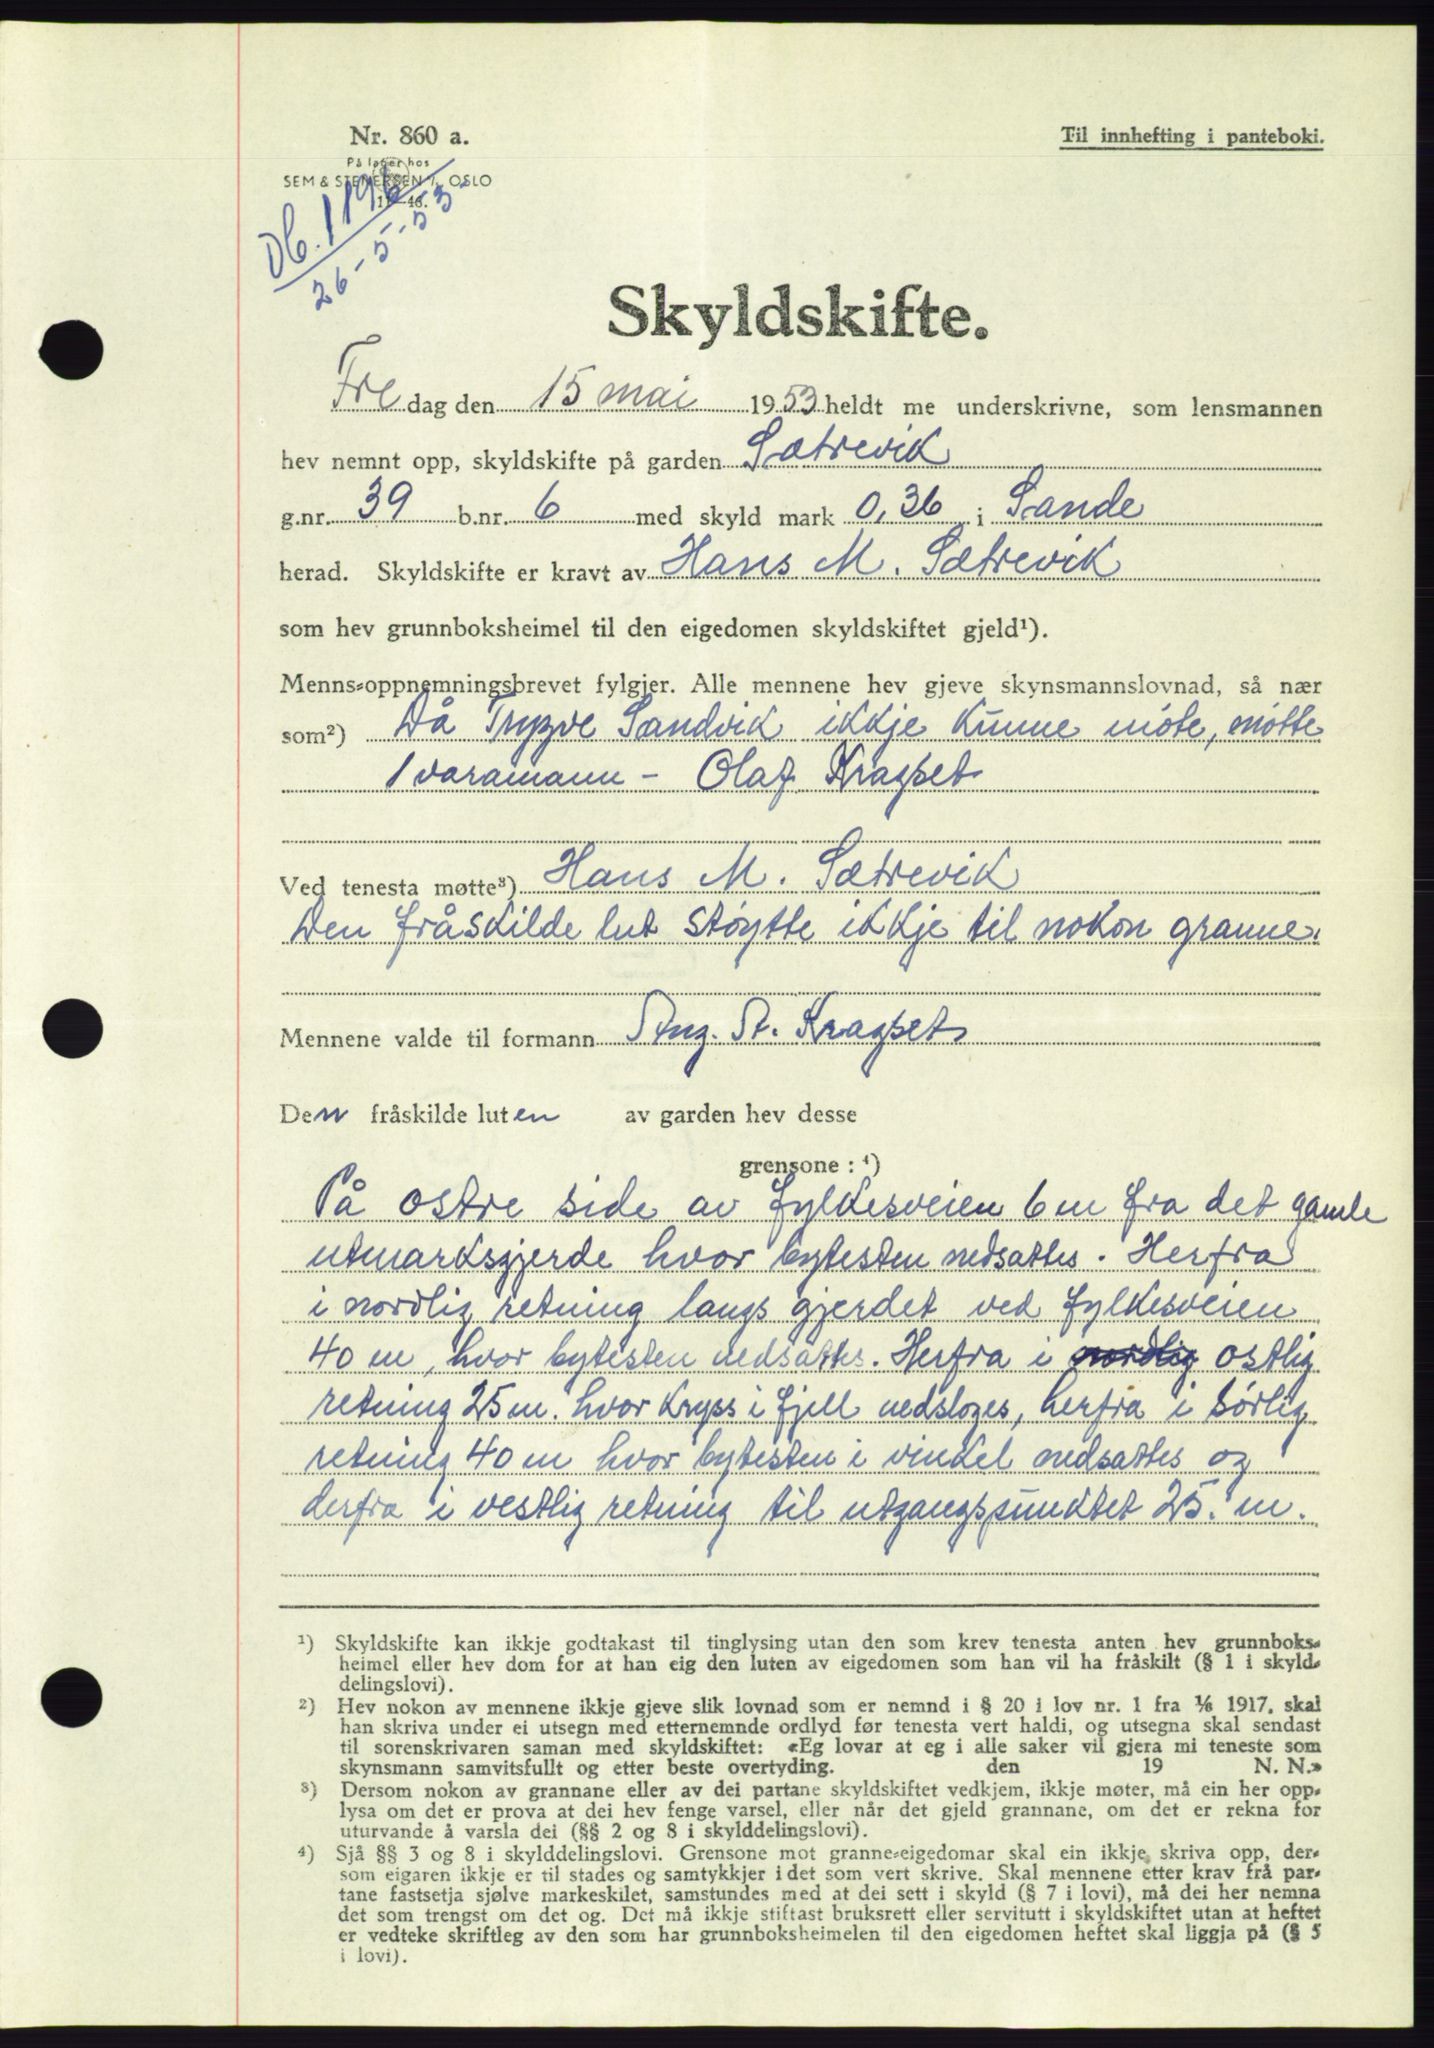 Nr. 860 a.
Til innhefting i panteboki.
På lager hos
SEM & STENERSEN A/S OSLO
11—46.
Db. 1196
26-5-53
Skyldskifte.
Fredag den 15 mai 1953 heldt me underskrivne, som lensmannen
hev nemnt opp, skyldskifte på garden Sætrevik
g.nr. 39 b.nr. 6 med skyld mark 0,36 i Sande
herad. Skyldskifte er kravt av Hans M. Sætrevik
som hev grunnboksheimel til den eigedomen skyldskiftet gjeld¹).
Menns-oppnemningsbrevet fylgjer. Alle mennene hev gjeve skynsmannslovnad, så nær
som²) Då Trygve Sandvik ikkje kunne møte, møtte
1 varamann - Olaf Kragset
Ved tenesta møtte³) Hans M. Sætrevik
Den fråskilde lut støytte ikkje til nokon granne.
Mennene valde til formann Ang. St. Kragset
Den fråskilde luten av garden hev desse
grensone : ⁴)
På østre side av fylkesveien 6 m fra det gamle
utmarksgjerde hvor bytesten nedsattes. Herfra
i nordlig retning langs gjerdet ved fylkesveien
40 m, hvor bytesten nedsattes. Herfra i nordlig ostlig
retning 25 m. hvor kryss i fjell nedsloges, herfra i sørlig
retning 40 m hvor bytesten i vinkel nedsattes og
derfra i vestlig retning til utgangspunktet 25. m.
¹) Skyldskifte kan ikkje godtakast til tinglysing utan den som krev tenesta anten hev grunnboks-
heimel eller hev dom for at han eig den luten av eigedomen som han vil ha fråskilt (§ 1 i skyld-
delingslovi).
²) Hev nokon av mennene ikkje gjeve slik lovnad som er nemnd i § 20 i lov nr. 1 fra 1/6 1917, skal
han skriva under ei utsegn med etternemnde ordlyd før tenesta vert haldi, og utsegna skal sendast
til sorenskrivaren saman med skyldskiftet: «Eg lovar at eg i alle saker vil gjera mi teneste som
skynsmann samvitsfullt og etter beste overtyding. den 19 N. N.»
³) Dersom nokon av grannane eller av dei partane skyldskiftet vedkjem, ikkje møter, må ein her opp-
lysa om det er prova at dei hev fenge varsel, eller når det gjeld grannane, om det er rekna for
uturvande å varsla dei (§§ 2 og 8 i skylddelingslovi).
⁴) Sjå §§ 3 og 8 i skylddelingslovi. Grensone mot granne-eigedomar skal ein ikkje skriva opp, der-
som eigaren ikkje er til stades og samtykkjer i det som vert skrive. Skal mennene etter krav frå par-
tane fastsetja sjølve markeskilet, samstundes med at dei sett i skyld (§ 7 i lovi), må dei her nemna
det som trengst om det og. Det må ikkje stiftast bruksrett eller servitutt i skyldskiftet utan at heftet
er vedteke skriftleg av den som har grunnboksheimelen til den eigedomen heftet skal liggja på (§ 5
i lovi).